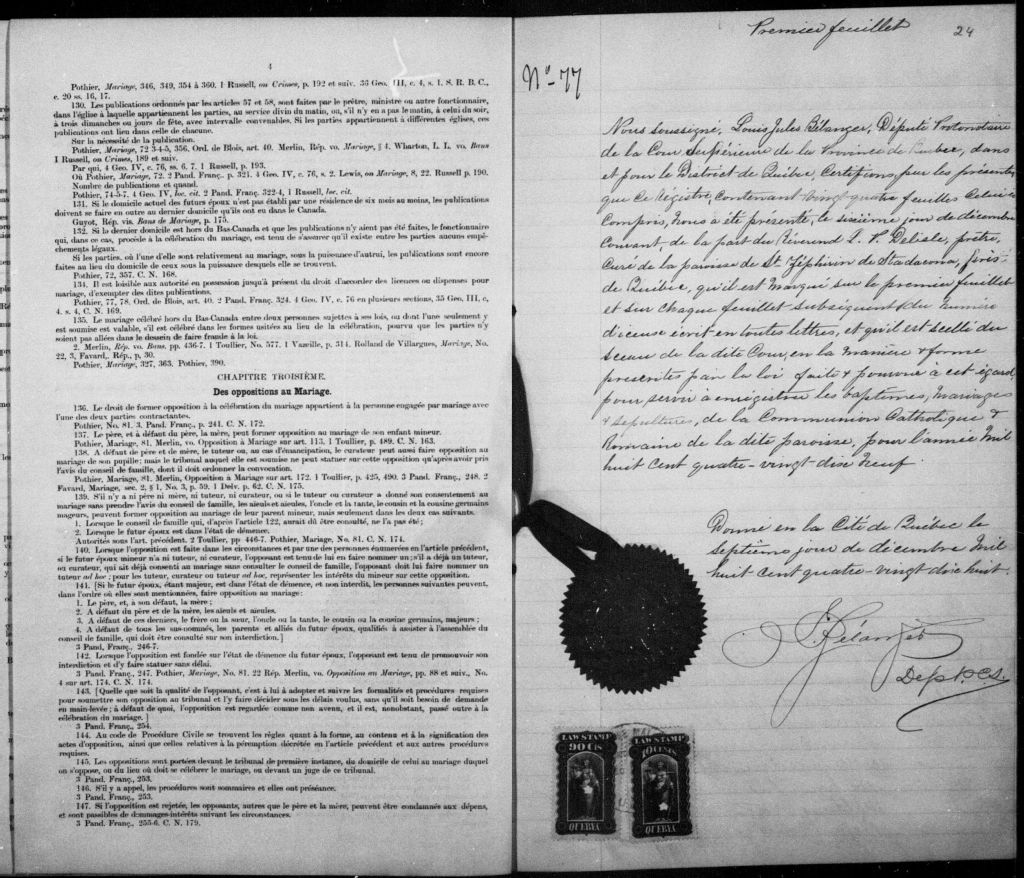 4
Pothier, Mariage, 346, 349, 354 à 360. 1 Russell, on Crimes, p. 192 et suiv. 36 Geo. III, c. 4, s. 1, S. R. B. C.,
c. 20 ss. 16, 17.
130. Les publications ordonnés par les articles 57 et 58, sont faites par le prêtre, ministre ou autre fonctionnaire,
dans l'église à laquelle appartiennent les parties, au service divin du matin, ou, s'il n'y en a pas le matin, à celui du soir,
à trois dimanches ou jours de fête, avec intervalle convenables. Si les parties appartiennent à différentes églises, ces
publications ont lieu dans celle de chacune.
Sur la nécessité de la publication.
Pothier, Mariage, 72 3-4-5, 356, Ord. de Blois, art. 40. Merlin, Rép. vo. Mariage, § 4. Wharton, L. L. vo. Bans
1 Russell, on Crimes, 189 et suiv.
Par qui, 4 Geo. IV, c. 76, ss. 6, 7. 1 Russell, p. 193.
Où Pothier, Mariage, 72. 2 Pand. Franç. p. 321. 4 Geo. IV, c. 76, s. 2. Lewis, on Mariage, 8, 22. Russell p. 190.
Nombre de publications et quand.
Pothier, 74-5-7. 4 Geo. IV, loc. cit. 2 Pand. Franç. 322-4, 1 Russell, loc. cit.
131. Si le domicile actuel des futurs époux n'est pas établi par une résidence de six mois au moins, les publications
doivent se faire en outre au dernier domicile qu'ils ont eu dans le Canada.
Guyot, Rép. vis. Bans de Mariage, p. 175.
132. Si le dernier domicile est hors du Bas-Canada et que les publications n'y aient pas été faites, le fonctionnaire
qui, dans ce cas, procède à la célébration du mariage, est tenu de s'assurer qu'il existe entre les parties aucuns empê-
chements légaux.
Si les parties, ou l'une d'elle sont relativement au mariage, sous la puissance d'autrui, les publications sont encore
faites au lieu du domicile de ceux sous la puissance desquels elle se trouvent.
Pothier, 72, 357. C. N. 168.
134. Il est loisible aux autorité en possession jusqu'à présent du droit d'accorder des licences ou dispenses pour
mariage, d'exempter des dites publications.
Pothier, 77, 78, Ord. de Blois, art. 40. 2 Pand. Franç. 324. 4 Geo. IV, c. 76 en plusieurs sections, 35 Geo. III, c,
4. s. 4, C. N. 169.
135. Le mariage célébré hors du Bas-Canada entre deux personnes sujettes à ses lois, ou dont l'une seulement y
est soumise est valable, s'il est célébré dans les formes usitées au lieu de la célébration, pourvu que les parties n'y
soient pas allées dans le dessein de faire fraude à la loi.
2. Merlin, Rép. vo. Bans, pp. 436-7. 1 Toullier, No. 577. 1 Vazeille, p. 314. Rolland de Villargues, Mariage, No.
22, 3, Favard,. Rép., p, 30.
Pothier, Mariage, 327, 363. Pothier, 390.
CHAPITRE TROISIÈME.
Des oppositions au Mariage.
136. Le droit de former opposition à la célébration du mariage appartient à la personne engagée par mariage avec
l'une des deux parties contractantes.
Pothier, No. 81. 3. Pand. Franç., p. 241. C. N. 172.
137. Le père, et à défaut du père, la mère, peut former opposition au mariage de son enfant mineur.
Pothier, Mariage, 81. Merlin, vo. Opposition à Mariage sur art. 113, 1 Toullier, p. 489. C. N. 163.
138. A défaut de père et de mère, le tuteur ou, au cas d'émancipation, le curateur peut aussi faire opposition au
mariage de son pupille; mais le tribunal auquel elle est soumise ne peut statuer sur cette opposition qu'après avoir pris
l'avis du conseil de famille, dont il doit ordonner la convocation.
Pothier, Mariage, 81. Merlin, Opposition à Mariage sur art. 172. 1 Toullier, p. 425, 490. 3 Pand. Franç., 248. 2
Favard, Mariage, sec. 2, § 1, No. 3, p. 59. 1 Delv. p. 62. C. N. 175.
139. S'il n'y a ni père ni mère, ni tuteur, ni curateur, ou si le tuteur ou curateur a donné son consentement au
mariage sans prendre l'avis du conseil de famille, les aïeuls et aïeules, l'oncle et la tante, le cousin et la cousine germains
majeurs, peuvent former opposition au mariage de leur parent mineur, mais seulement dans les deux cas suivants.
1. Lorsque le conseil de famille qui, d'après l'article 122, aurait dû être consulté, ne l'a pas été;
2. Lorsque le futur époux est dans l'état de démence.
Autorités sous l'art. précédent. 2 Toullier, pp 446-7. Pothier, Mariage, No. 81. C. N. 174.
140. Lorsque opposition est faite dans les circonstances et par une des personnes énumérées en l'article précédent,
si le futur époux mineur n'a ni tuteur, ni curateur, l'opposant est tenu de lui en faire nommer un; s'il a déjà un tuteur,
ou curateur, qui ait déjà consenti au mariage sans consulter le conseil de famille, l'opposant doit lui faire nommer un
tuteur ad hoc; pour les tuteur, curateur ou tuteur ad hoc, représenter les intérêts du mineur sur cette opposition.
141. [Si le futur époux, étant majeur, est dans l'état de démence, et non interdit, les personnes suivantes peuvent,
dans l'ordre où elles sont mentionnées, faire opposition au mariage:
1. Le père, et, à son défaut, la mère;
2. A défaut du père et de la mère, les aïeuls et aïeules.
3. A défaut de ces derniers, le frère ou la sœur, l'oncle ou la tante, le cousin ou la cousine germains, majeurs;
4. A défaut de tous les sus-nommés, les parents et alliés du futur époux, qualifiés à assister à l'assemblée du
conseil de famille, qui doit être consulté sur son interdiction.]
3 Pand. Franç., 246-7.
142. Lorsque l'opposition est fondée sur l'état de démence du futur époux, l'opposant est tenu de promouvoir son
interdiction et d'y faire statuer sans délai.
3 Pand. Franç., 247. Pothier, Mariage, No. 81. 22 Rép. Merlin, vo. Opposition au Mariage, pp. 88 et suiv., No.
4 sur art. 174. C. N. 174.
143. [Quelle que soit la qualité de l'opposant, c'est à lui à adopter et suivre les formalités et procédures requises
pour soumettre son opposition au tribunal et l'y faire décider sous les délais voulus, sans qu'il soit besoin de demande
en main-levée; à défaut de quoi, l'opposition est regardée comme non avenu, et il est, nonobstant, passé outre à la
célébration du mariage.]
3 Pand. Franç., 254.
144. Au code de Procédure Civile se trouvent les règles quant à la forme, au contenu et à la signification des
actes d'opposition, ainsi que celles relatives à la péremption décrétée en l'article précédent et aux autres procédures
requises.
145. Les oppositions sont portées devant le tribunal de première instance, du domicile de celui au mariage duquel
on s'oppose, ou du lieu où doit se célébrer le mariage, ou devant un juge de ce tribunal.
3 Pand. Franç., 253.
146. S'il y a appel, les procédures sont sommaires et elles ont préséance.
3 Pand. Franç., 253.
147. Si l'opposition est rejetée, les opposants, autres que le père et la mère, peuvent être condamnés aux dépens,
et sont passibles de dommages-intérêts suivant les circonstances.
3 Pand. Franç., 255-6. C. N. 179.
Premier feuillet
24
No 77
Nous soussigné, Louis Jules Bélanger, Député Protonotaire
de la Cour Supérieure de la Province de Québec, dans
et pour le District de Québec, Certifions, par les présentes
que ce Régistre, contenant vingt-quatre feuilles Celui-ci
Compris, nous a été présenté, le sixième jour de décembre
Courant, de la part du Révérend L. P. Delisle, prêtre,
Curé de la paroisse de St Zéphirin de Stadacona, près
de Québec, qu'il est marqué sur le premier feuillet
et sur chaque feuillet subséquent du Numéro
d'iceux écrit en toutes lettres, et qu'il est scellé du
sceau de la dite Cour, en la manière & forme
prescrites par la loi faite & pourvue à cet égard
pour servir à enregistrer les baptêmes, Mariages
& sépultures, de la Communion Catholique &
Romaine de la dite paroisse, pour l'année Mil
huit Cent quatre-vingt-dix Neuf.
Donné en la Cité de Québec le
Septième jour de décembre Mil
huit Cent quatre-vingt dix huit.
Bélanger
Dep. P. C. S.
LAW STAMP
90 CTS
QUEBEC
LAW STAMP
10 CENTS
QUEBEC